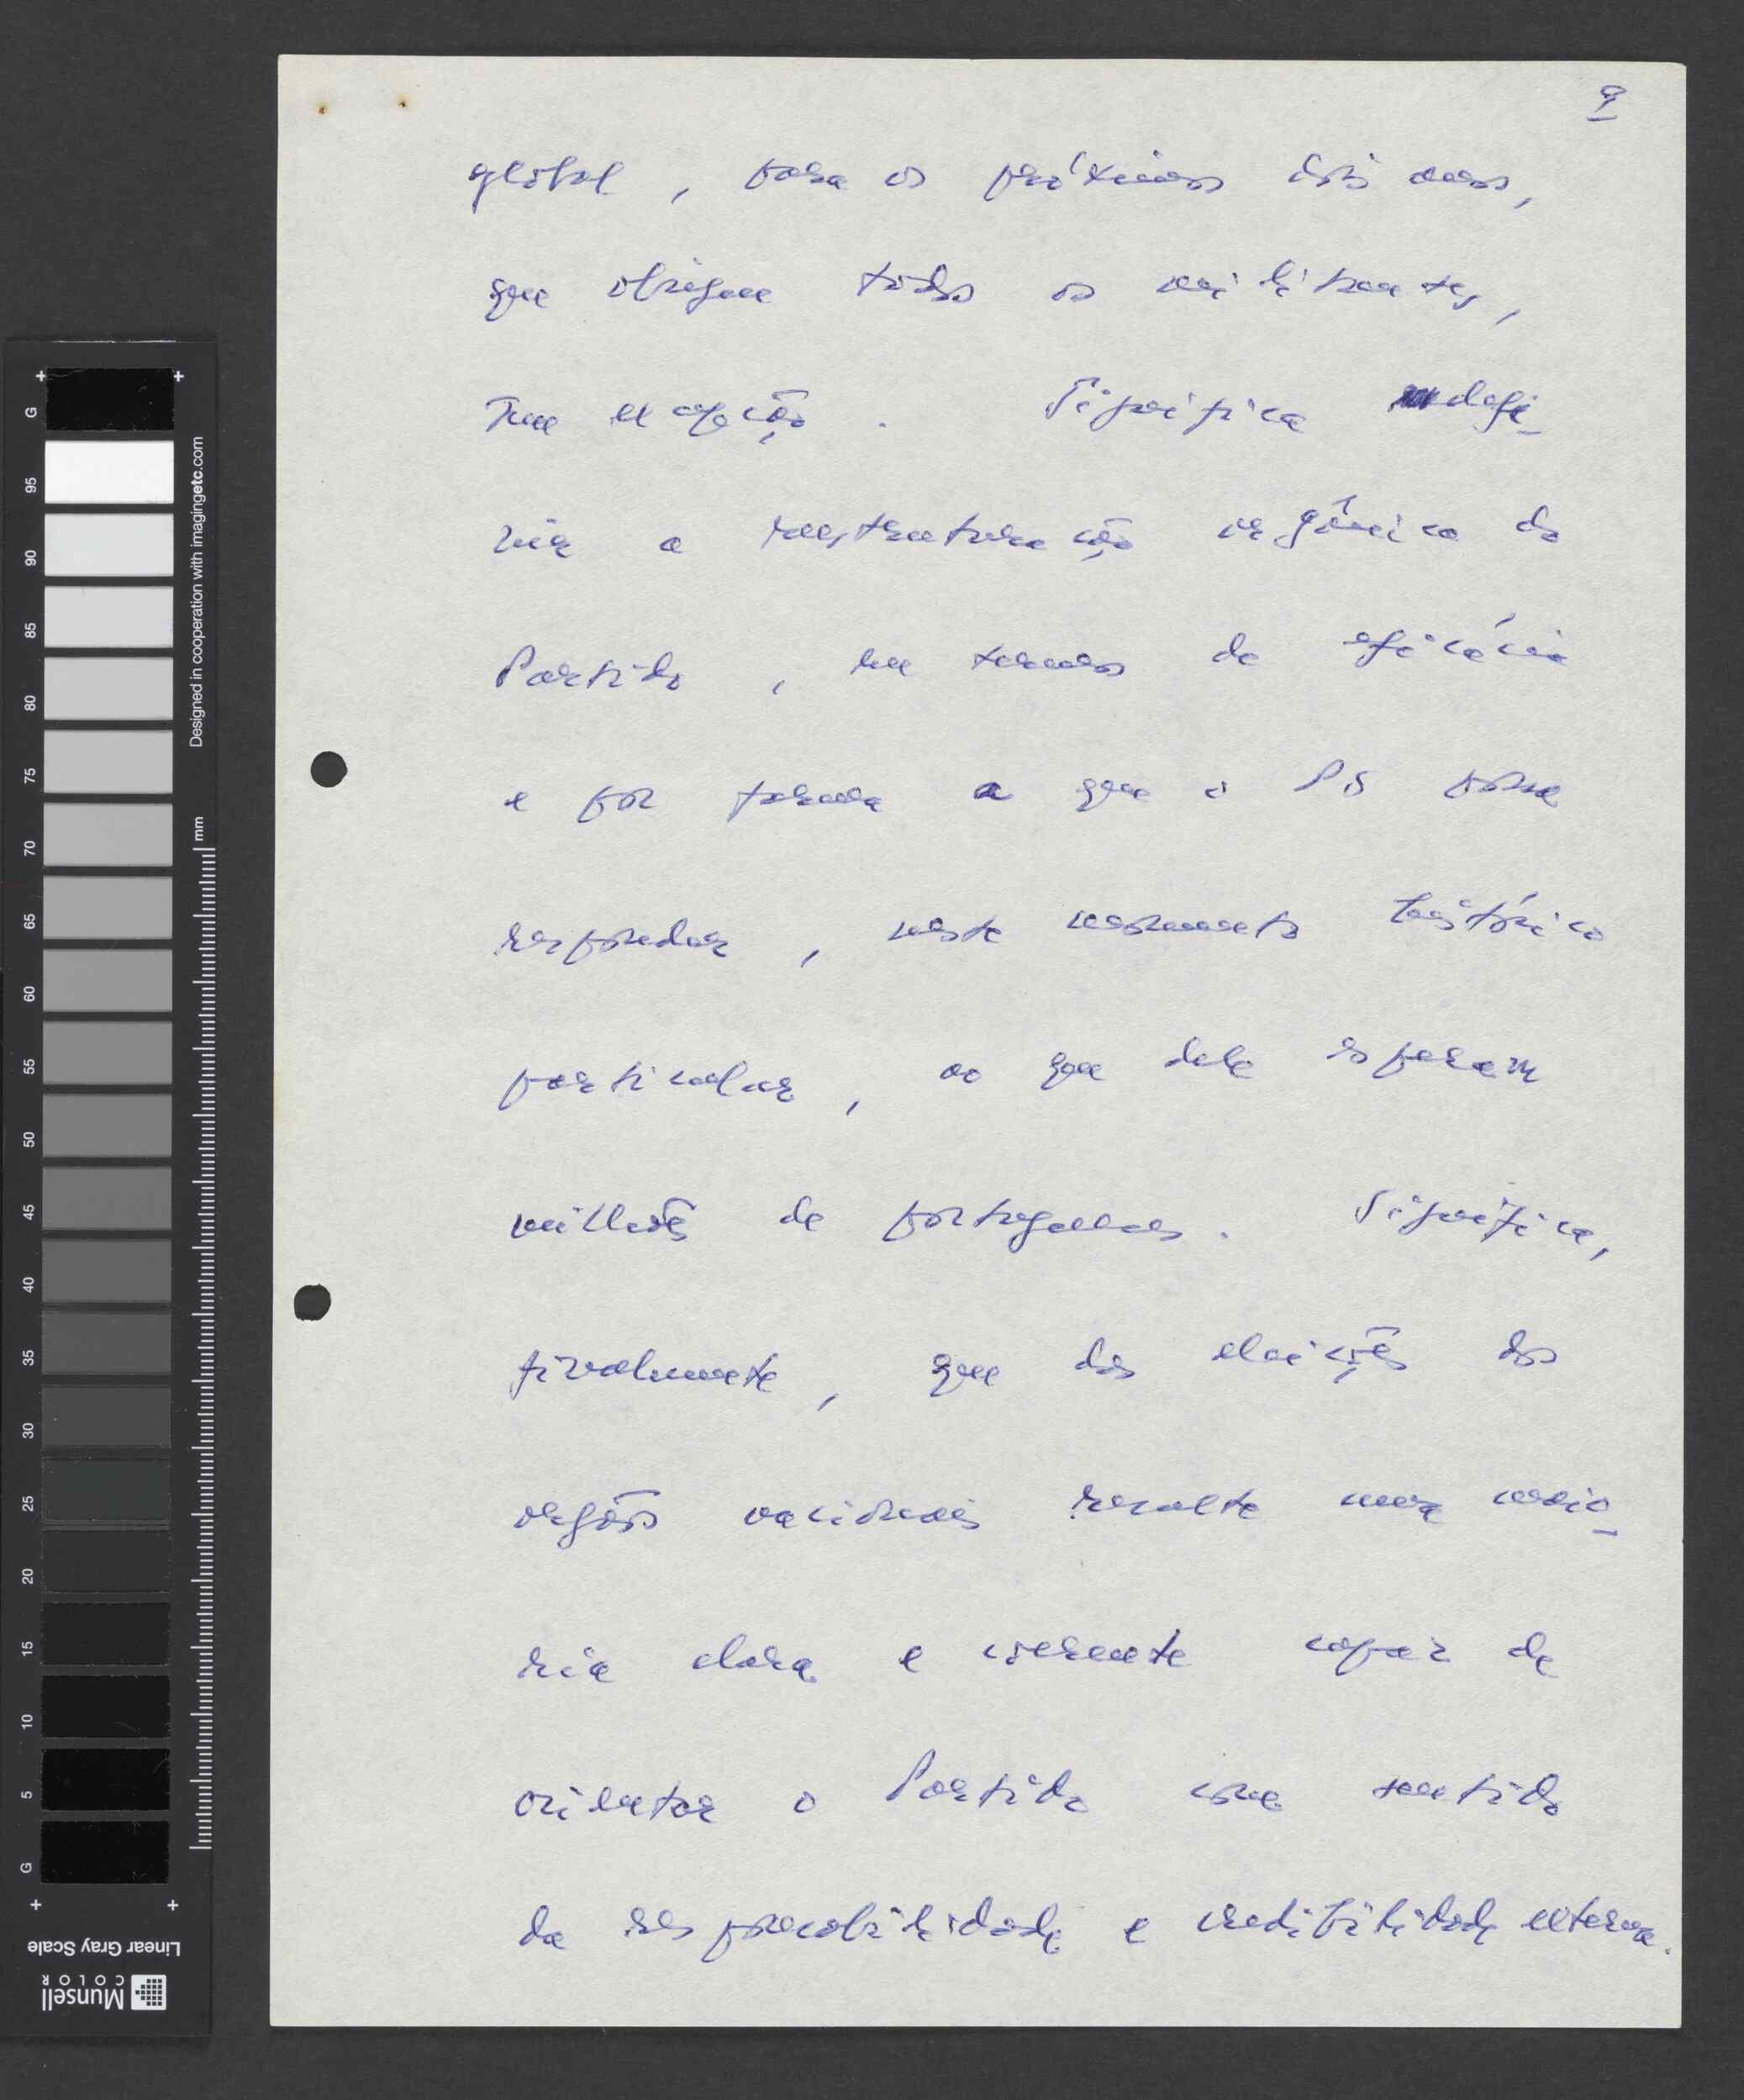 9
global, para os próximos dois anos,
que obrigue todos os militantes,
sem excepção. Significa defi-
nir a reestruturação orgânica do
Partido, em termos de eficácia
e por forma a que o PS possa
responder, neste momento histórico
particular, ao que dele esperam
milhões de portugueses. Significa,
finalmente, que das eleições dos
orgãos nacionais resulte uma maio-
ria clara e coerente capaz de
orientar o Partido com sentido
de responsabilidade e credibilidade externa.
G
95
90
85
80
75
70
65
60
55
50
45
40
35
30
25
20
15
10
5
G
Designed in cooperation with imagingetc.com
mm
Linear Gray Scale
Munsell
COLOR